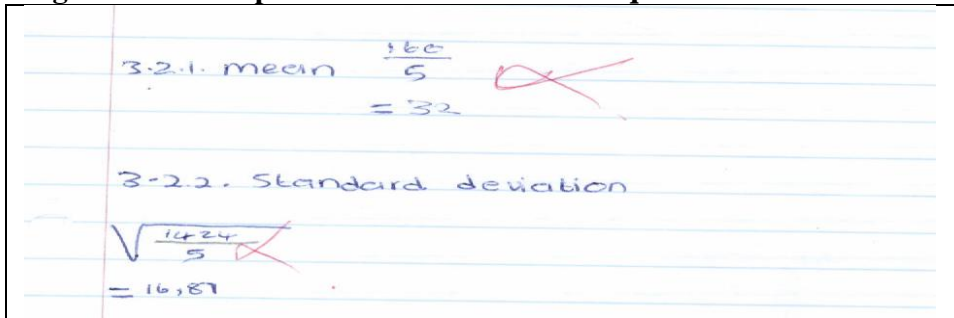 3.2.1. mean 160
5
= 32
3-2.2. Standard deviation
√ 1424
5
= 16,87